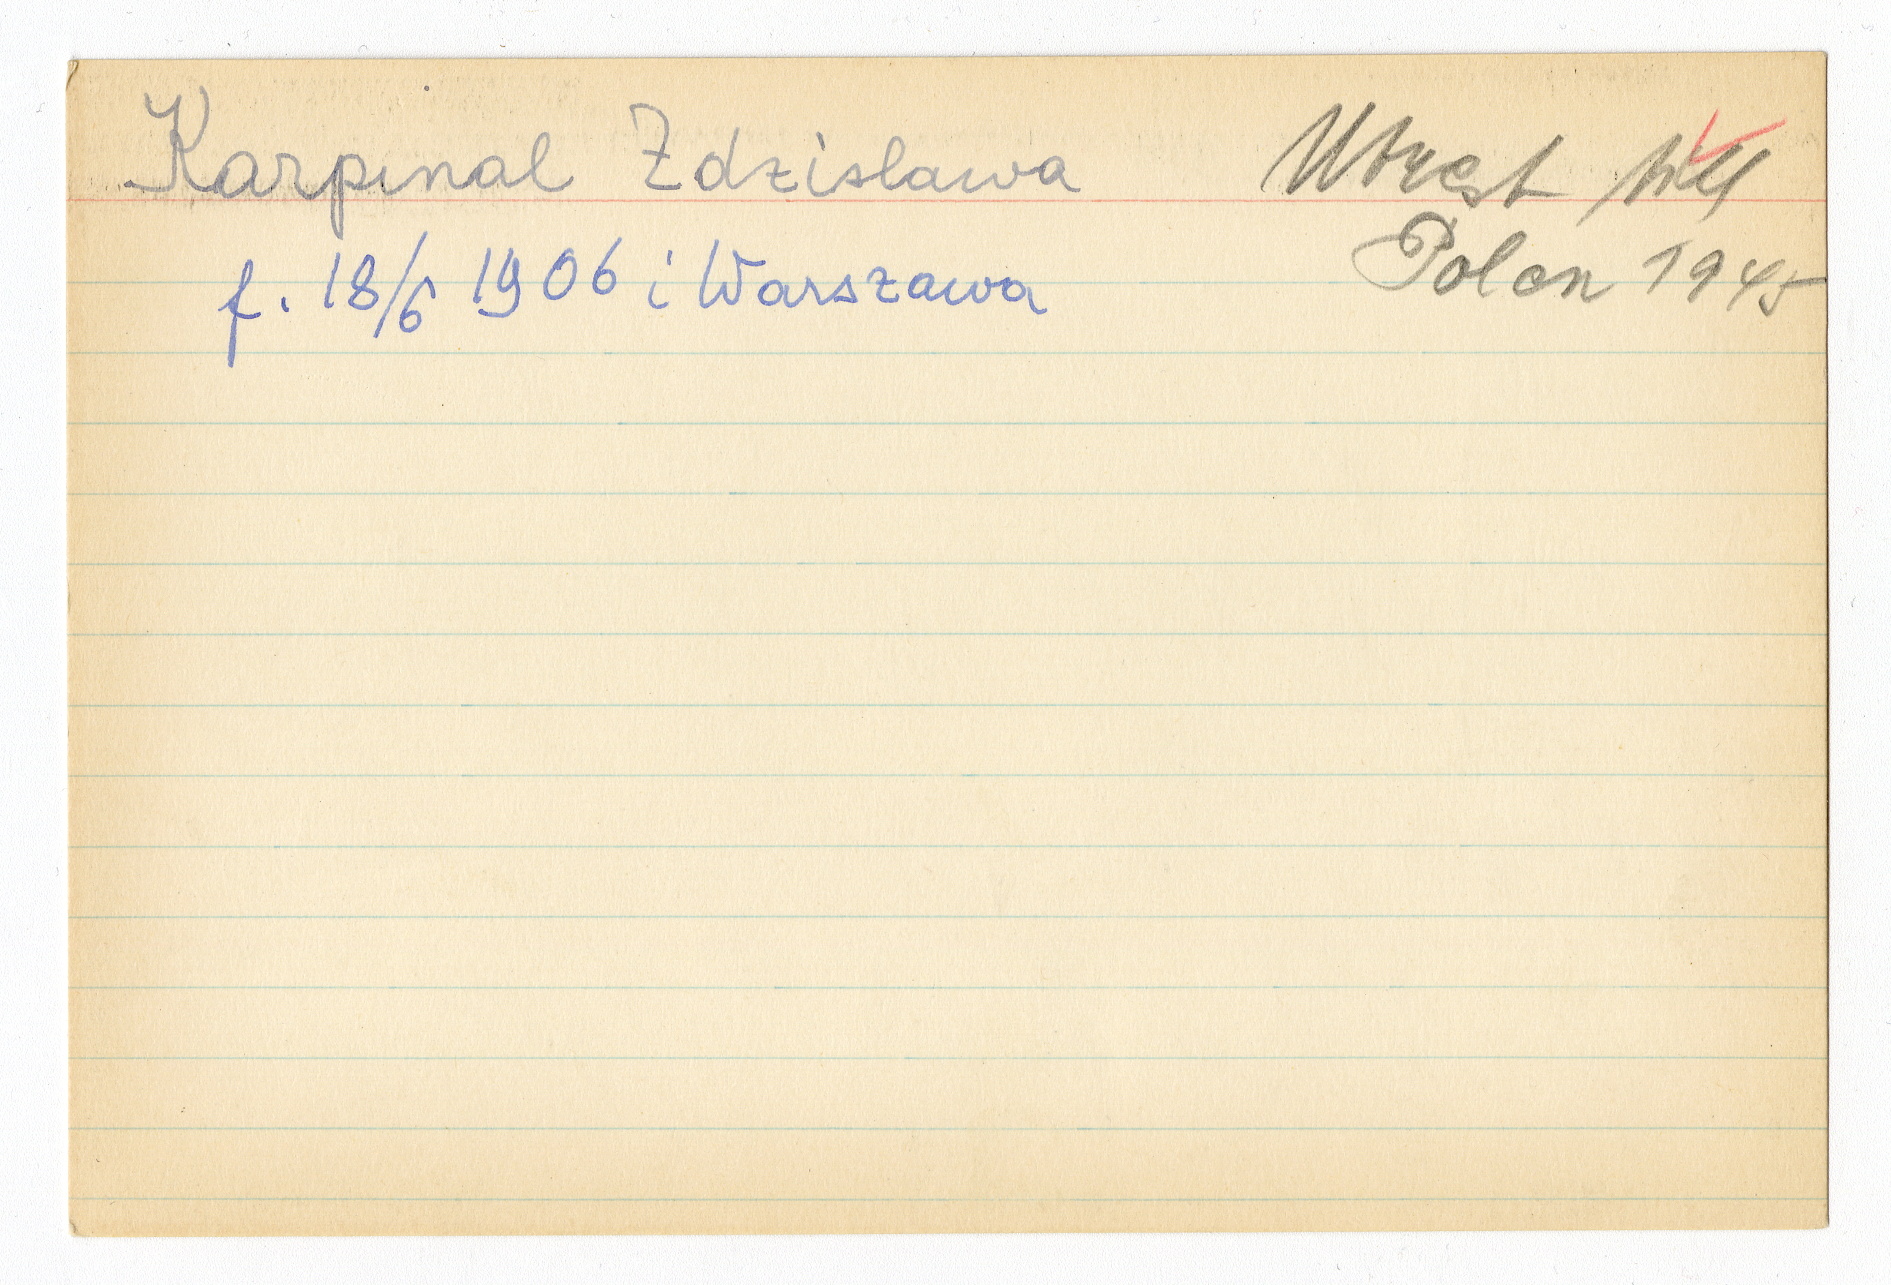 Karpinal Zdzislawa
Utrest till
Polen 1945
f. 18/6 1906 i Warszawa